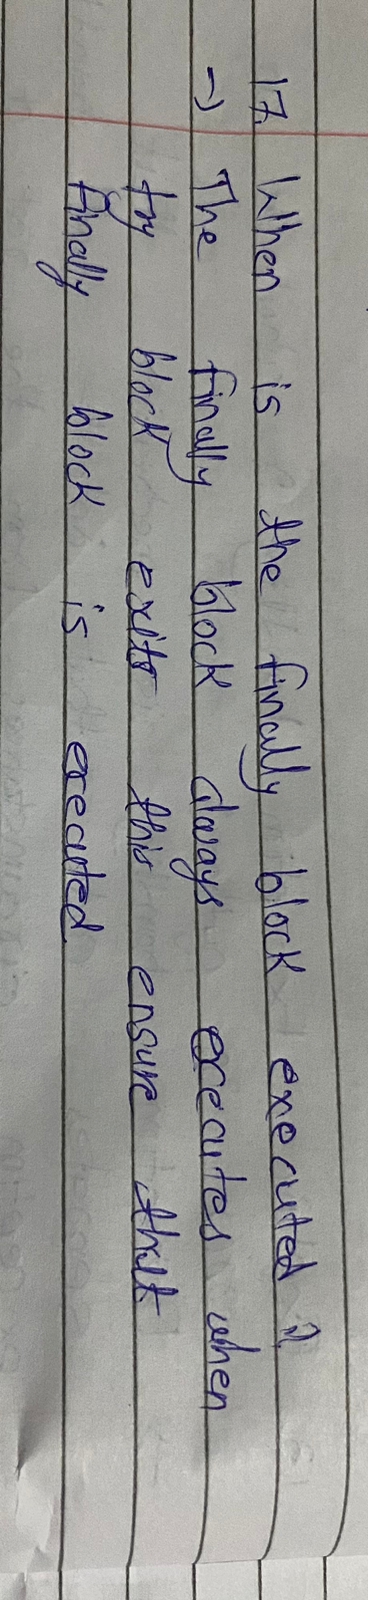 17. When is the finally block executed?
→ The finally block always executes when
try block exits this ensure that
finally block is executed